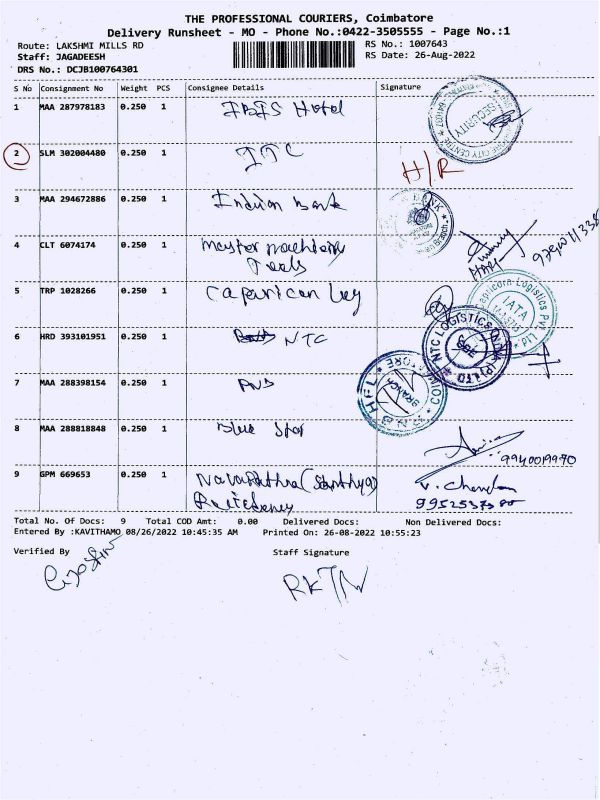 THE PROFESSIONAL COURIERS, Coimbatore
Delivery Runsheet - MO - Phone No.:0422-3505555 - Page No.:1
Route: LAKSHMI MILLS RD RS No.: 1007643
Staff: JAGADEESH RS Date: 26-Aug-2022
DRS No.: DCJB100764301
S No Consignment No Weight PCS Consignee Details Signature
1 MAA 287978183 0.250 1 IBIS Hotel
SECURITY
2 SLM 302004480 0.250 1 ITC H/R
3 MAA 294672886 0.250 1 Indian Bank
4 CLT 6074174 0.250 1 Master machine
Tools
5 TRP 1028266 0.250 1 Caparicon Log
IATA
6 HRD 393101951 0.250 1 NTC
NTC LOGISTICS INDIA (P) LTD
7 MAA 288398154 0.250 1 PNB
P.N.B.H.F.L COIMBATORE
BRANCH
8 MAA 288818848 0.250 1 Blue Star
9940019970
9 GPM 669653 0.250 1 Navarathna
Residency
Total No. Of Docs: 9 Total COD Amt: 0.00 Delivered Docs: Non Delivered Docs:
Entered By :KAVITHAMO 08/26/2022 10:45:35 AM Printed On: 26-08-2022 10:55:23
Verified By Staff Signature